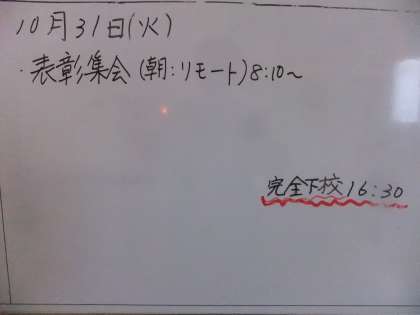 10月31日(火)
・表彰集会(朝:リモート)8:10～
完全下校16:30